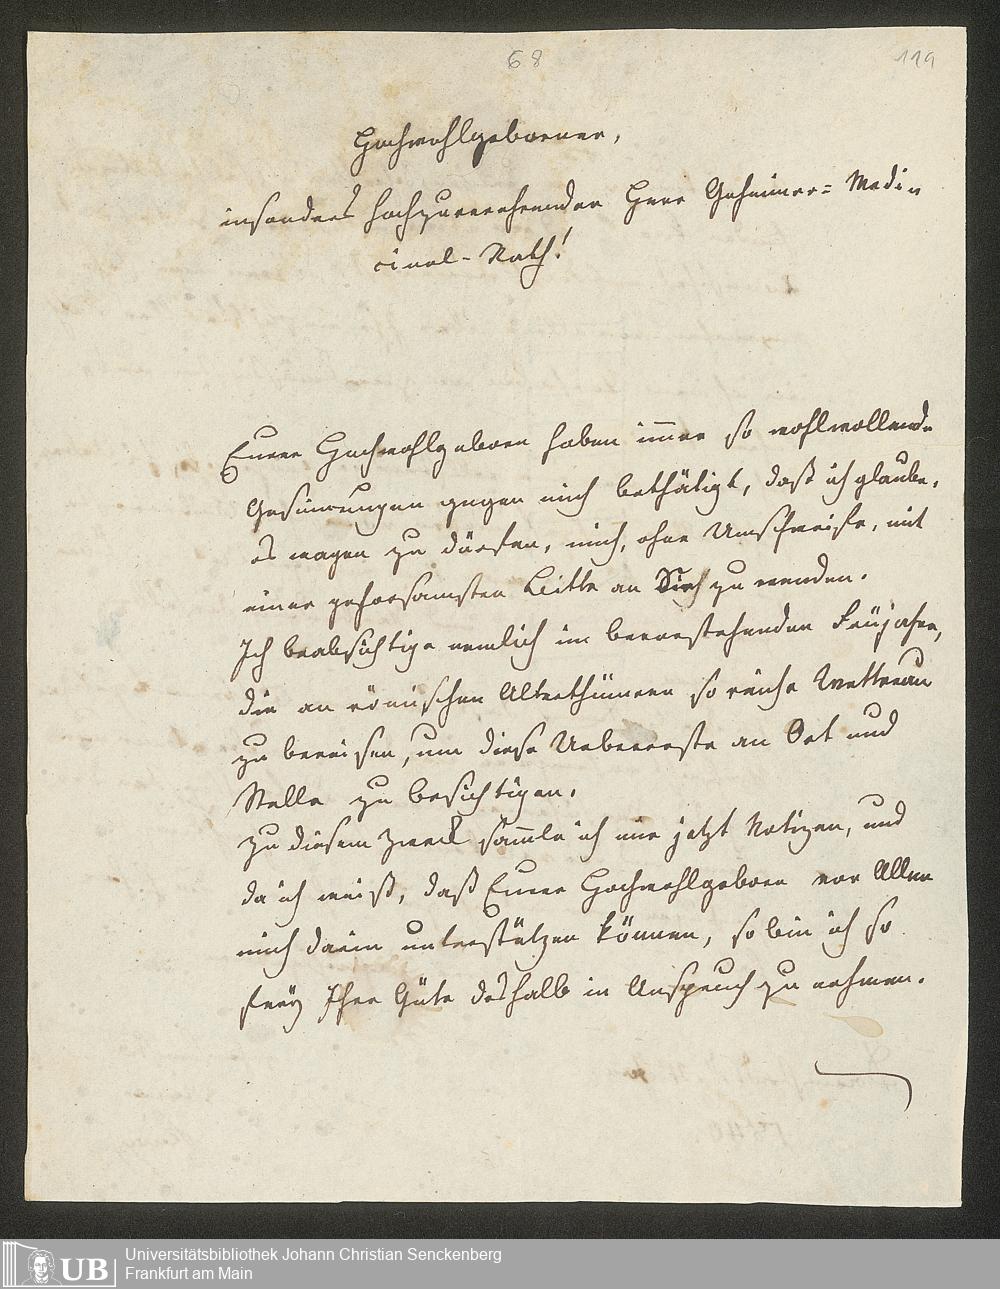 68
119
Hochwohlgeborner,
insonders hochzuverehrender Herr Geheimer= Medi
cinal-Rath!
Euere Hochwohlgeboren haben immer so wohlwollende
Gesinnungen gegen mich bethätigt, daß ich glaube,
es wagen zu dürfen, mich, ohne Umschweife, mit
einer gehorsamsten Bitte an Sie zu wenden.
Ich beabsichtige nemlich im bevorstehenden Frühjahre,
die an römischen Alterthümern so reiche Wetterau
zu bereisen, um diese Ueberreste an Ort und
Stelle zu besichtigen.
Zu diesem Zweck sammle ich mir jetzt Notizen, und
da ich weiß, daß Euere Hochwohlgeboren vor Allen
mich darin unterstützen können, so bin ich so
frey Ihre Güte deshalb in Anspruch zu nehmen.
UB
Universitätsbibliothek Johann Christian Senckenberg
Frankfurt am Main